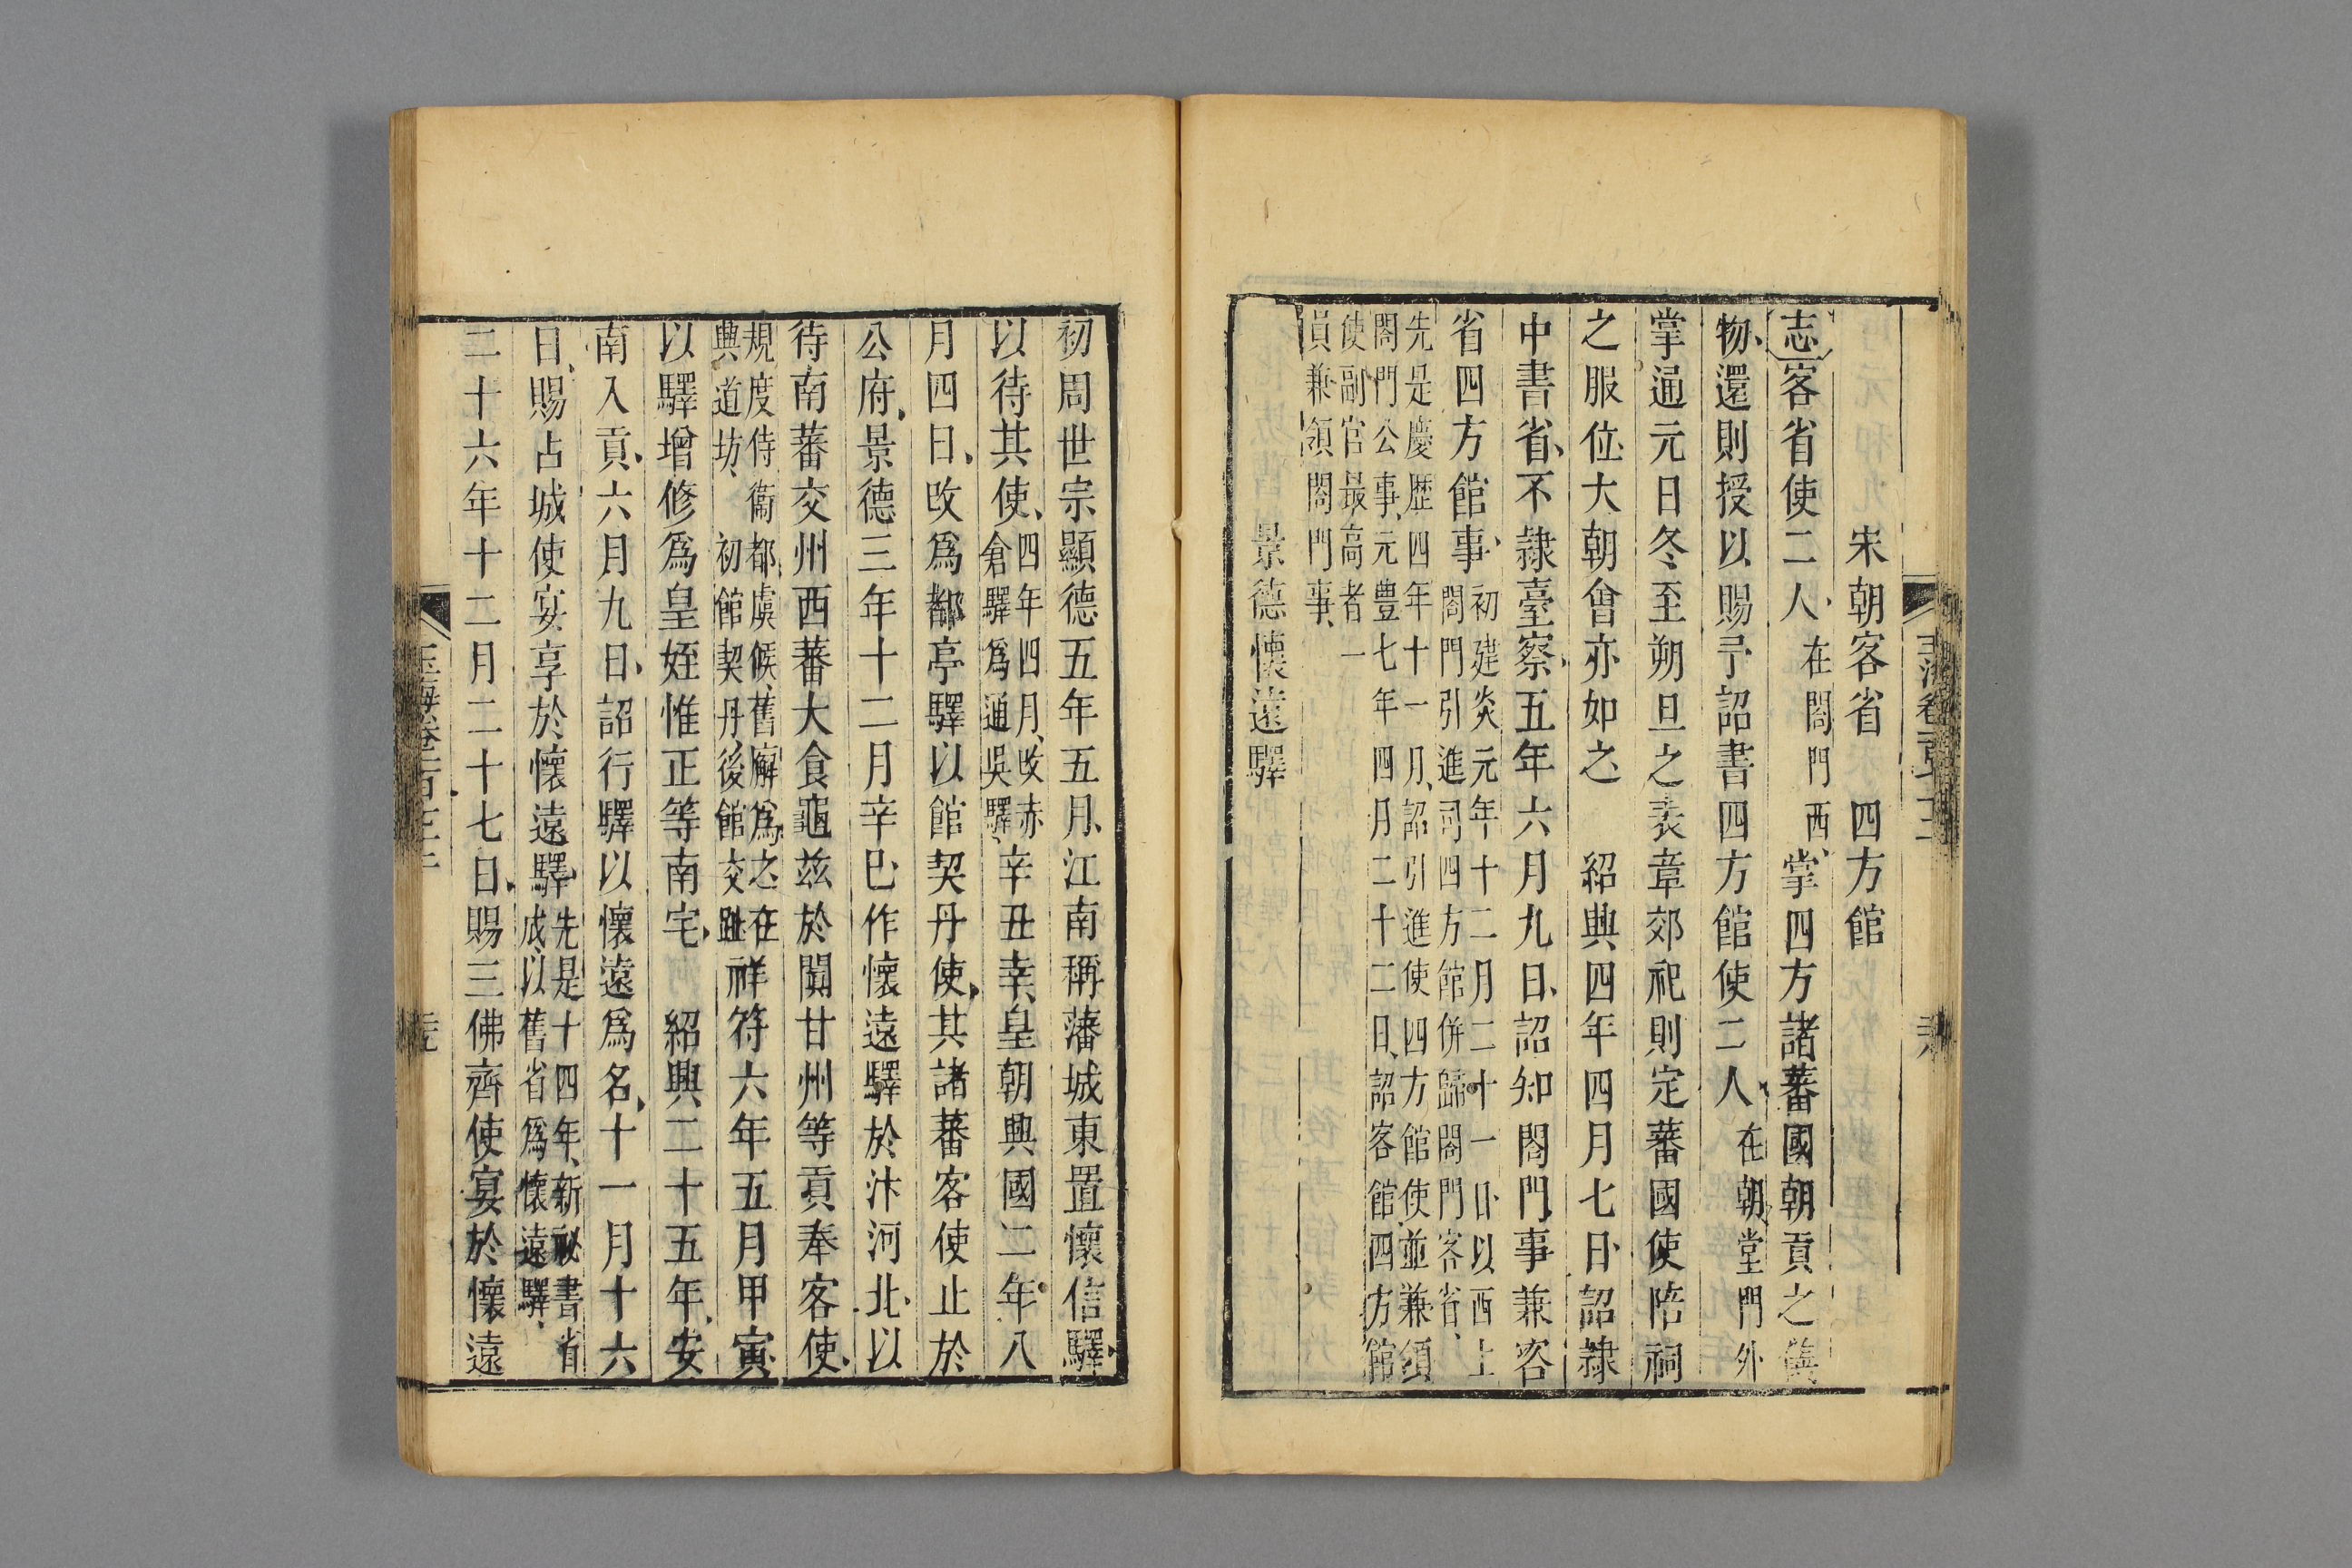 宋朝客省　四方館
志客省使二人在閤門西掌四方諸蕃國朝貢之儀
物還則授以賜予詔書四方館使二人在朝堂門外
掌通元日冬至朔旦之表章郊祀則定蕃國使陪祠
之服位大朝會亦如之　紹興四年四月七日詔隷
中書省不隷臺察五年六月九日詔知閤門事兼客
省四方館事初建炎元年十二月二十一日以西上
閤門引進司四方館併歸閤門客省
先是慶歷四年十一月詔引進使四方館使並兼領
閤門公事元豐七年四月二十二日詔客館四方館
使副官最高者一
員兼領閤門事
景德懷遠驛
初周世宗顯德五年五月江南稱藩城東置懷信驛
以待其使四年四月改赤
倉驛爲通吳驛辛丑幸皇朝興國二年八
月四日改爲都亭驛以館契丹使其諸蕃客使止於
公府景德三年十二月辛巳作懷遠驛於汴河北以
待南蕃交州西蕃大食龜兹於闐甘州等貢奉客使
規度侍衞都虞候舊廨爲之在
興道坊　初館契丹後館交趾祥符六年五月甲寅
以驛增修爲皇姪惟正等南宅　紹興二十五年安
南入貢六月九日詔行驛以懷遠爲名十一月十六
日賜占城使宴享於懷遠驛先是十四年新祕書省
成以舊省爲懷遠驛
二十六年十二月二十七日賜三佛齊使宴於懷遠